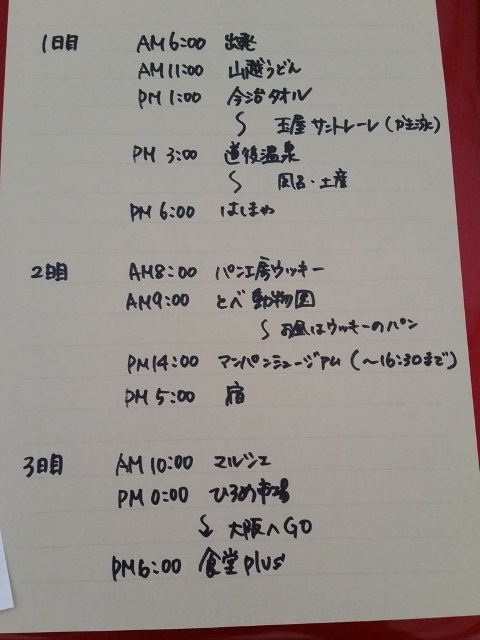 1日目 AM6:00 出発
AM11:00 山越うどん
PM 1:00 今治タオル
〜 玉屋 サントレーレ (が主泳)
PM 3:00 道後温泉
〜 風呂・土産
PM 6:00 はしまや
2日目 AM8:00 パン工房ウッキー
AM9:00 とべ動物園
〜 お昼はウッキーのパン
PM14:00 アンパンミュージアム (〜16:30まで)
PM 5:00 宿
3日目 AM 10:00 マルシェ
PM 0:00 ひろめ市場
↓ 大阪へGO
PM6:00 食堂plus